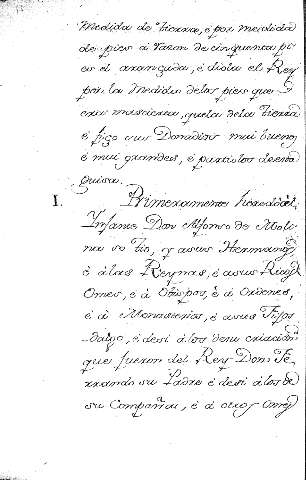 Medida de tierra, é por medida
de pies á razon de cinquenta pi-
es el aranzada, é diola el Rey
por la Medida de los pies que
era mas sana, que la de la tierra
é fizo sus Donadios mui buenos
é mui grandes, é partiolos de esta
guisa.
I. Primeramente heredó al
Infante Don Alfonso de Moli-
na su tio, y a sus Hermanos,
é á las Reynas, é a sus Ricos
Omes, é á Obispos, é á Ordenes,
é á Monasterios, é a sus Fijos
dalgo, é desi á los de su criazon
que fueron del Rey Don Fe-
rrando su Padre é desi á los de
su Compañia, é á otros Omes